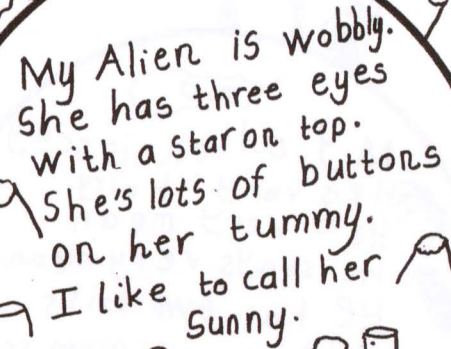 My Alien is wobbly.
She has three eyes
with a star on top.
She's lots of buttons
on her tummy.
I like to call her
Sunny.